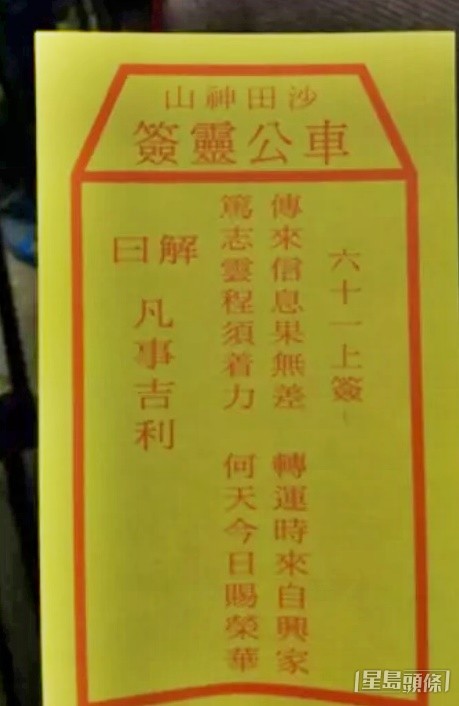 沙田神山
車公靈簽
六十一上簽
傳來信息果無差 轉運時來自興家
篤志雲程須着力 何天今日賜榮華
解曰
凡事吉利
星島頭條